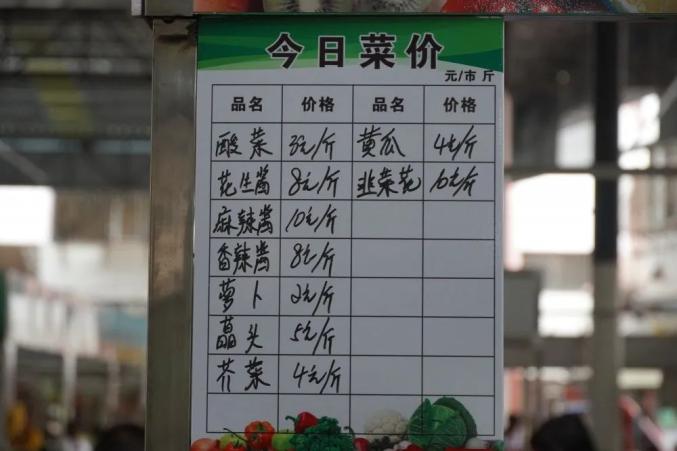 今日菜价
元/市斤
品名 价格 品名 价格
酸菜 3元/斤 黄瓜 4元/斤
花生酱 8元/斤 韭菜花 10元/斤
麻辣酱 10元/斤
香辣酱 8元/斤
萝卜 2元/斤
藠头 5元/斤
芥菜 4元/斤